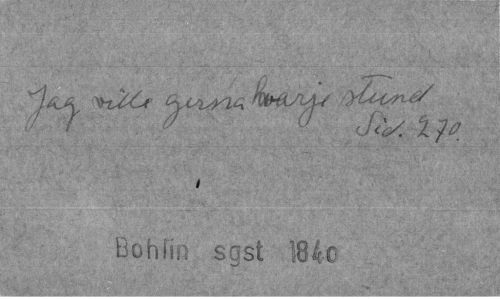 Jag ville gerna hvarje stund
Sid. 270.
Bohlin sgst 1840